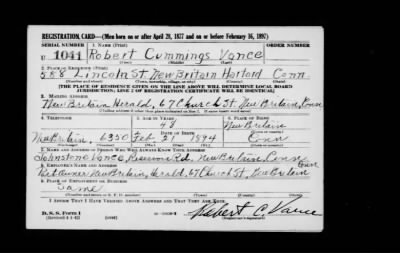 REGISTRATION CARD—(Men born on or after April 28, 1877 and on or before February 16, 1897)
SERIAL NUMBER 1. NAME (Print) ORDER NUMBER
U 1041 Robert Cummings Vance
(First) (Middle) (Last)
2. PLACE OF RESIDENCE (Print)
588 Lincoln St. New Britain Hartford Conn
(Number and street) (Town, township, village, or city) (County) (State)
[THE PLACE OF RESIDENCE GIVEN ON THE LINE ABOVE WILL DETERMINE LOCAL BOARD
JURISDICTION; LINE 2 OF REGISTRATION CERTIFICATE WILL BE IDENTICAL]
3. MAILING ADDRESS
New Britain Herald, 67 Church St. New Britain, Conn
[Mailing address if other than place indicated on line 2. If same insert word same]
4. TELEPHONE 5. AGE IN YEARS 6. PLACE OF BIRTH
48 New Britain
DATE OF BIRTH
New Britain, 6350 Feb 21 1894 Conn
(Exchange) (Number) (Mo.) (Day) (Yr.) (State or country)
7. NAME AND ADDRESS OF PERSON WHO WILL ALWAYS KNOW YOUR ADDRESS
Johnstone Vance, Reservoir Rd. New Britain Conn
8. EMPLOYER'S NAME AND ADDRESS
Conn
Part owner New Britain Herald, 67 Church St., New Britain
9. PLACE OF EMPLOYMENT OR BUSINESS
Same
(Number and street or R. F. D. number) (Town) (County) (State)
I AFFIRM THAT I HAVE VERIFIED ABOVE ANSWERS AND THAT THEY ARE TRUE.
Robert C. Vance
D. S. S. Form 1
(Revised 4-1-42) (over)
(Registrant's signature)